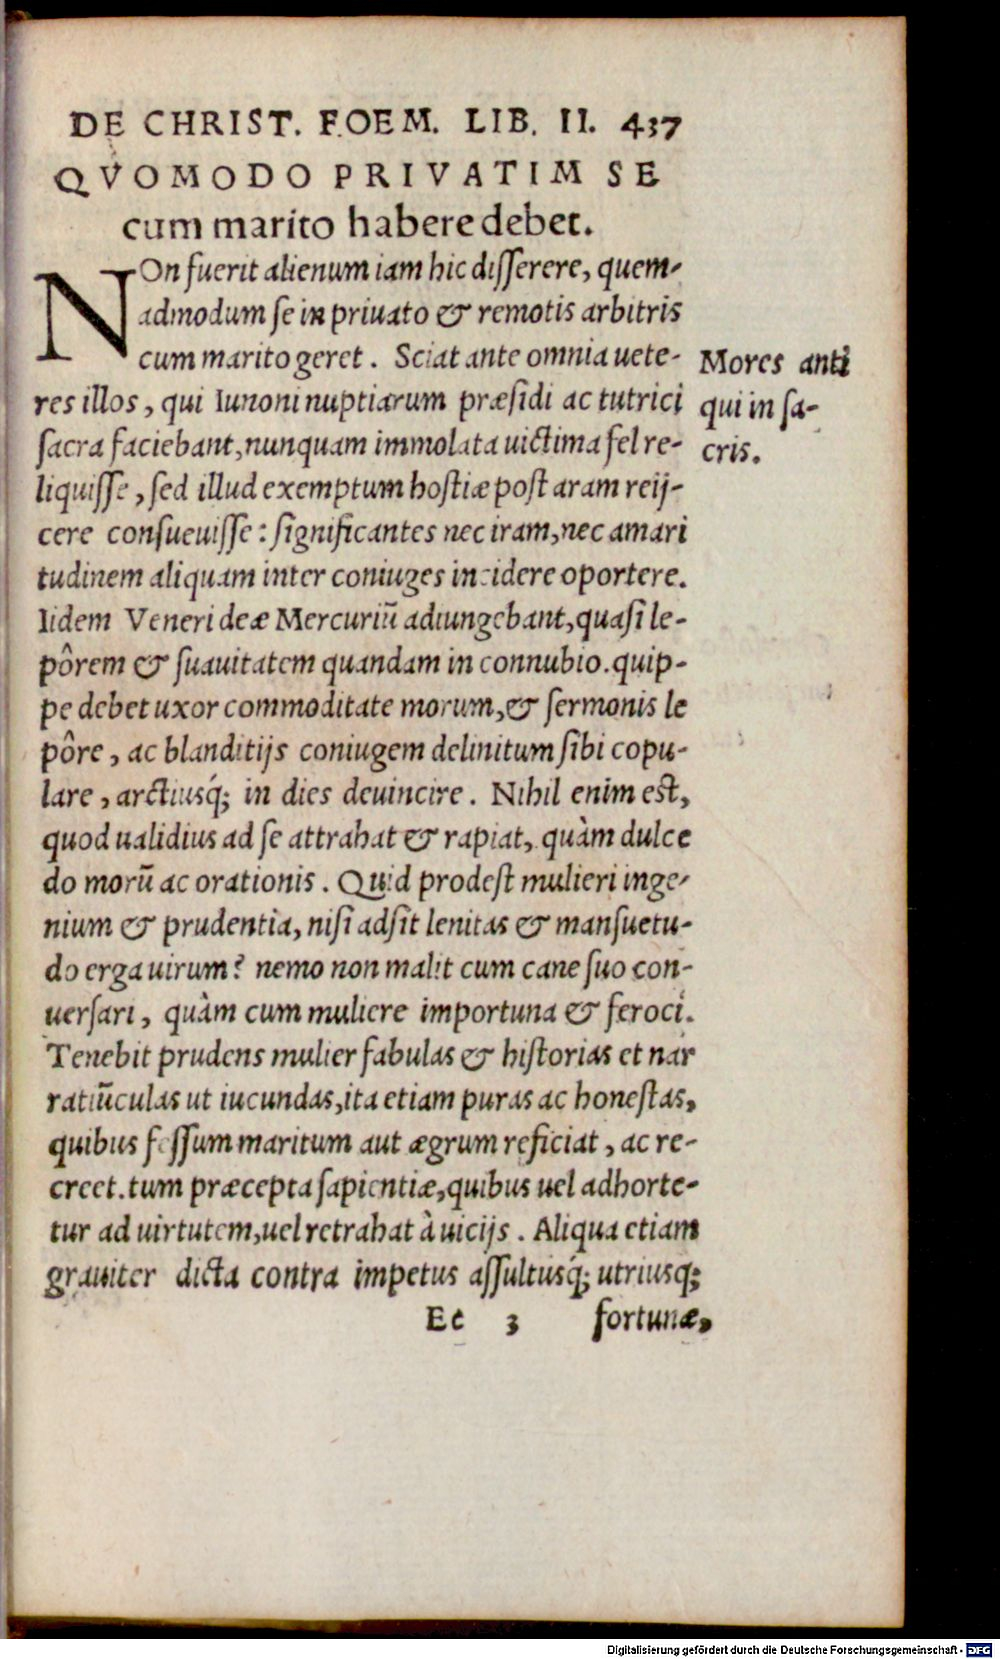 DE CHRIST. FOEM. LIB. II. 437
QVOMODO PRIVATIM SE
cum marito habere debet.
NOn fuerit alienum iam hic disserere, quem-
admodum se in priuato & remotis arbitris
cum marito geret. Sciat ante omnia uete-
res illos, qui Iunoni nuptiarum præsidi ac tutrici
sacra faciebant, nunquam immolata uictima fel re-
liquisse, sed illud exemptum hostiæ post aram reij-
cere consueuisse: significantes nec iram, nec amari
tudinem aliquam inter coniuges incidere oportere.
Iidem Veneri deæ Mercuriũ adiungebant, quasi le-
pôrem & suauitatem quandam in connubio. quip-
pe debet uxor commoditate morum, & sermonis le
pôre, ac blanditijs coniugem delinitum sibi copu-
lare, arctiusq́; in dies deuincire. Nihil enim est,
quod ualidius ad se attrahat & rapiat, quàm dulce
do morũ ac orationis. Quid prodest mulieri inge-
nium & prudentia, nisi adsit lenitas & mansuetu-
do erga uirum? nemo non malit cum cane suo con-
uersari, quàm cum muliere importuna & feroci.
Tenebit prudens mulier fabulas & historias et nar
ratiũculas ut iucundas, ita etiam puras ac honestas,
quibus fessum maritum aut ægrum reficiat, ac re-
creet. tum præcepta sapientiæ, quibus uel adhorte-
tur ad uirtutem, uel retrahat à uicijs. Aliqua etiam
grauiter dicta contra impetus assultusq́; utriusq;
Ee 3 fortunæ,
Mores anti
qui in sa-
cris.
Digitalisierung gefördert durch die Deutsche Forschungsgemeinschaft - DFG